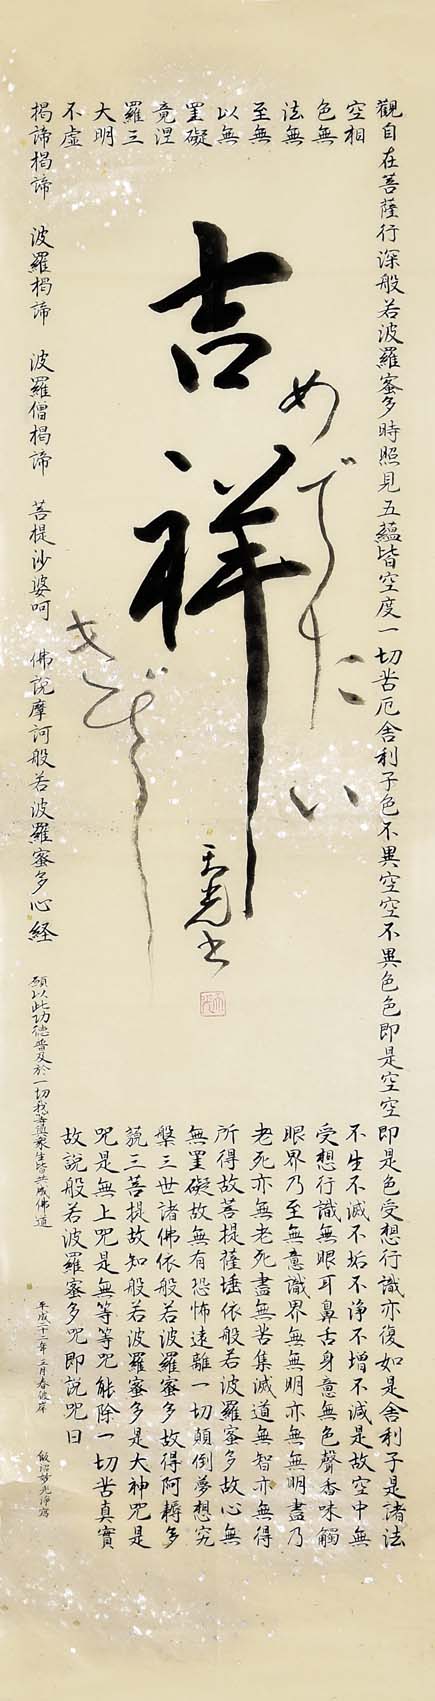 觀自在菩薩行深般若波羅蜜多時照見五蘊皆空度一切苦厄舍利子色不異空空不異色色即是空空即是色受想行識亦復如是舍利子是諸法
空相不生不滅不垢不浄不增不減是故空中無
色無受想行識無眼耳鼻舌身意無色聲香味觸
法無眼界乃至無意識界無無明亦無無明盡乃
至無老死亦無老死盡無苦集滅道無智亦無得
以無所得故菩提薩埵依般若波羅蜜多故心無
罣礙無罣礙故無有恐怖遠離一切顛倒夢想究
竟涅槃三世諸佛依般若波羅蜜多故得阿耨多
羅三藐三菩提故知般若波羅蜜多是大神咒是
大明咒是無上咒是無等等咒能除一切苦真實
不虛故說般若波羅蜜多咒即說咒曰
揭諦揭諦 波羅揭諦 波羅僧揭諦 菩提沙婆呵 佛說摩訶般若波羅蜜多心経
願以此功德普及於一切我等與衆生皆共成佛道
平成十二年三月春彼岸
めでたい
吉祥
きざし
天光書